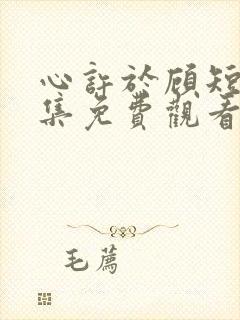 心許於顧短
集免費觀看
毛薦